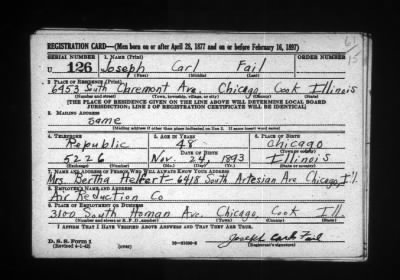 REGISTRATION CARD—(Men born on or after April 28, 1877 and on or before February 16, 1897)
SERIAL NUMBER 1. NAME (Print) ORDER NUMBER
U 126 Joseph Carl Fail
(First) (Middle) (Last)
2. PLACE OF RESIDENCE (Print)
6453 South Claremont Ave. Chicago Cook Illinois
(Number and street) (Town, township, village, or city) (County) (State)
[THE PLACE OF RESIDENCE GIVEN ON THE LINE ABOVE WILL DETERMINE LOCAL BOARD
JURISDICTION; LINE 2 OF REGISTRATION CERTIFICATE WILL BE IDENTICAL]
3. MAILING ADDRESS
Same
[Mailing address if other than place indicated on line 2. If same insert word same]
4. TELEPHONE 5. AGE IN YEARS 6. PLACE OF BIRTH
Republic 48 Chicago
DATE OF BIRTH (Town or county)
5226 Nov. 24, 1893 Illinois
(Exchange) (Number) (Mo.) (Day) (Yr.) (State or country)
7. NAME AND ADDRESS OF PERSON WHO WILL ALWAYS KNOW YOUR ADDRESS
Mrs. Bertha Helfert - 6418 South Artesian Ave Chicago, Ill.
8. EMPLOYER'S NAME AND ADDRESS
Air Reduction Co
9. PLACE OF EMPLOYMENT OR BUSINESS
3100 South Homan Ave. Chicago, Cook Ill.
(Number and street or R. F. D. number) (Town) (County) (State)
I AFFIRM THAT I HAVE VERIFIED ABOVE ANSWERS AND THAT THEY ARE TRUE.
D. S. S. Form 1
(Revised 4-1-42) (over)
Joseph Carl Fail
(Registrant's signature)